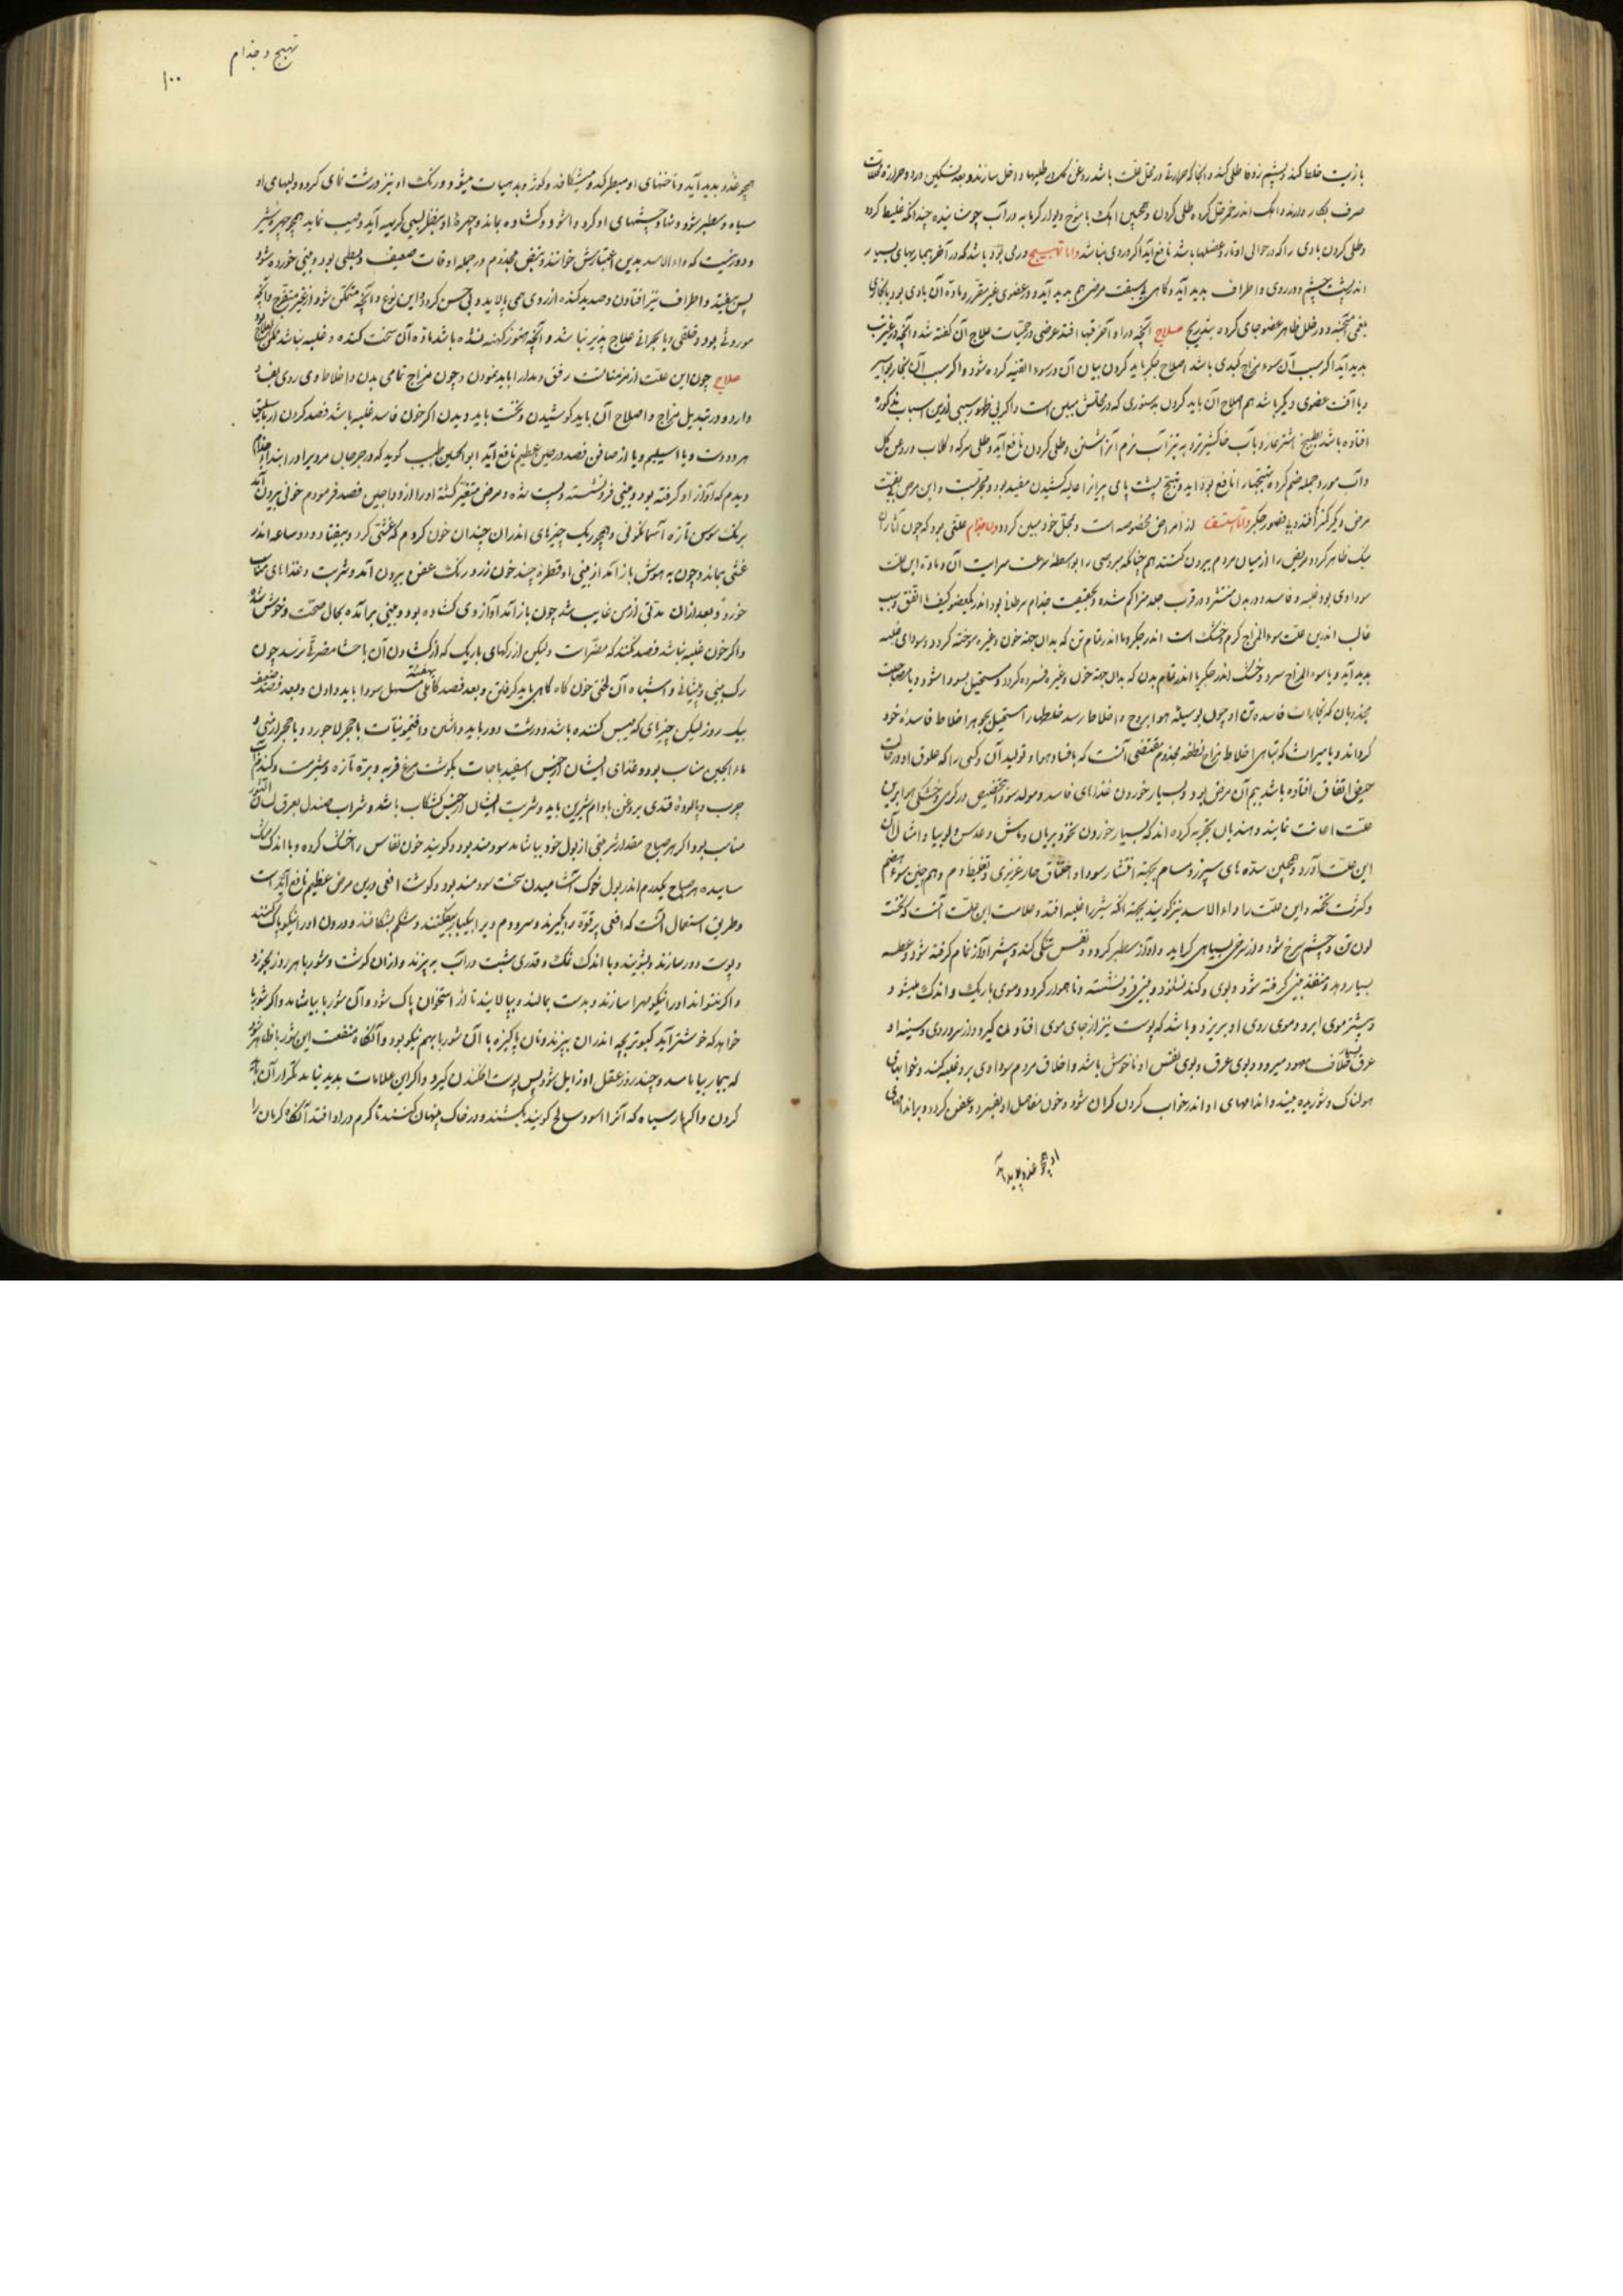 با زیت خلط کنند و پشم زوفا طلی کنند و آنجا که حرارتی در محل علت باشد روغن گل در طلیها داخل سازند و بعد تسکین درد و حرارت
صرف بکار دارند و اهک اندر خمر حل کرده طلی کردن و همچنین اهک با شوخ دیوار گرمابه در آب جوشانیده چندانکه غلیظ گردد
و طلی کردن بادی را که در حوالی اوتار و عضلها باشد نافع آید اگر دردی نباشد واما تهبج ورمی بود باشد که در آخر بیماریهای بسیار
اندر پشت چشم و در روی و اطراف بدید آید و گاهی بی سبقت مرضی هم بدید آید و در عضوی غیر مقرر و ماده آن بادی بود یا بخاری
بلغمی و در خلل ظاهر عضو جای کرده بتدریج علاج آنچه در اواخر تبها افتد عرضی در حمیات علاج آن گفته شد و آنچه
بدید آید اگر سبب آن سوء مزاج کبدی باشد اصلاح جگر باید کردن بیان آن در سوء القنیه کرده شود و اگر سبب آن
و با آفت عضوی دیگر باشد هم اصلاح آن باید کردن بدستوری که در محلش مبین است و اگر بی ظهور سببی ازین اسباب مذکوره
افتاده باشد بطبیخ اشنر غار و بآب خاکستر نزد به تیز آب نرم آنرا شستن و طلی کردن نافع آید و طلی سرکه و گلاب و روغن گل
و آب مورد جمله ضم کرده تهبجها را نافع بود
مرض دیگر گر افتد یا قصور جگر واما استسقا از امراض مخصوصه است و بمحل خود مبین گردد واما جذام علتی بود که چون آثار آن
نیک ظاهر گردد مریض را از میان مردم بیرون کنند هم چنانکه مبروصی را بواسطه سرعت سرایت آن و ماده این علت
سوداوی بود غلبه و فاسد و در بدن منتشر و در قرب جلد متراکم شده و بحقیقت جذام سرطانی بود اندر یکعضو کیف ما اتفق و سبب
غالب اندرین علت سوء المزاج گرم و خشک است اندر جگر و یا اندر تمام تن که بدان جهة خون و غیره سوخته گردد و سودای غلبه
بدید آید و یا سوء المزاج سرد و خشک اندر جگر یا اندر تمام بدن که بدان جهة خون و غیره فسرده گردد و مستحیل بسودا شود و یا مصاحبت
مجذومان که بخارات فاسده تن او چون بوسیله هوا بروح و اخلاط رسد خلطها را مستحیل بجوهر اخلاط فاسده خود
گرداند و یا میراث که تباهی اخلاط مزاج نطفه مجذوم مقتضی آنست که با فساد هوا و تولید آن و کسی را که علوق او در حالت
حیض اتفاق افتاده باشد بیم آن مرض بود و بسیار خوردن غذاهای فاسد و مولد سودا بتخصیص در گرمی و خشکی هوا برین
علت اعانت نمایند و هندیان تجربه کرده اند که بسیار خوردن نخود بریان و ماش و عدس و لوبیا و امثال آن
این علت آورد و همچنین سده های سپرز و مسام بجهة انتشار سودا و اختناق حار غریزی و تغلیظ دم و هم چنین سوء هضم
و کثرت تخمه و این علت را داء الاسد نیز گویند بجهة آنکه شیر را غلبه افتد و علامت این علت آنست که نخست
لون تن و چشم سرخ شود و از سرخی بسیاهی گراید و آواز سطبر گردد و نفس تنگی کند و بیشتر آواز تمام گرفته شود و عطسه
بسیار دهد و منفذ بینی گرفته شود و بوی و گند نشنود و بینی فرو نشسته و ناهموار گردد و موی باریک و اندک میشود
و بیشتر موی ابرو و موی روی او بریزد و باشد که پوست نیز از جای موی افتادن گیرد و از سر و روی و سینه او
عرق خلاف معهود میرود و بوی عرق و بوی نفس او ناخوش باشد و اخلاق مردم سوداوی برو غلبه کند و خوابهای
هولناک و شوریده بیند و اندامهای او اندر خواب کردن گران شود و خون مفاصل او بفسرد و عفن گردد و بر اندامهای
او همچو غدود بدید آید
تهبج و جذام
۱۰۰
همچو غدود بدید آید و ناخنهای او سطبر گردد و میشکافد و کوژ و بد هیات میشود و رنگ او نیز درشت نمای گردد و لبهای او
سیاه و سطبر شود و چشمهای او گرد و آشود و گشاده بماند و چهره او بفعل بسی کریه آید و مهیب نماید همچو چهره شیر
و دور نیست که داء الاسد بدین اعتبارش خوانند و نبض مجذوم در جمله اوقات ضعیف و بطی بود و بینی خورده شود
پس بیفتد و اطراف نیز افتادن و صدید گنده از وی همی پالاید و بی حس گردد و این نوع و آنچه متمکن شود از غیر متقرح و آنچه
موروثی بود و خلقی و یا بحرانی علاج پذیر نباشد و آنچه هنوز کهنه نشده باشد ماده آن سخت گنده و غلبه نباشد ممکن العلاج بود
علاج چون این علت از مزمناتست رفق و مدارا باید نمودن و چون مزاج تمامی بدن و اخلاط وی روی بفساد
دارد و در تبدیل مزاج و اصلاح آن باید کوشیدن و نخست باید دیدن اگر خون فاسد غلبه باشد فصد کردن از باسلیق
هر دو دست و یا اسیلم و یا از صافن فصد ودجین عظیم نافع آید ابو الحسین طبیب گوید که در جرجان مردیرا در ابتداء جذام
دیدم که آواز او گرفته بود و بینی فرو نشسته و پست شده و مرض متغیر گشته او را از وداجین فصد فرمودم خونی بیرون آمد
برنگ سوس تازه آسمانگونی و همچو ریگ چیزهای اندران چندان خون کردم که غشی کرد و بیفتاد و دو ساعه اندر
غشی بماند و چون به هوش باز آمد از بینی او قطره چند خون زرد رنگ عفن بیرون آمد و شربت و غذاهای مناسب
خورد و بعد ازان مدتی از من غایب شد چون باز آمد آواز وی گشاده بود و بینی برآمده بحال صحت و خوش شد
و اگر خون غلبه نباشد فصد نکنند که مضر است ولیکن از رگهای باریک که از گشادن آن باحشا مضرتی نرسد چون
رگ بینی و پیشانی و اشباه آن لختی خون گاه گاهی باید گرفتن و بعد فصد کاملی بهفته مسهل سودا باید دادن و بعد فصد ضعیف
بیک روز لیکن چیزهای که یبس کننده باشد و درشت دور باید داشتن و افتیمونیات با حجر لاجورد و یا حجر ارمنی و
ماء الجبن مناسب بود و غذای ایشان از جنس اسفیدباجات بگوشت مرغ فربه و بره تازه و شربت و گندم آب
چرب و پالوده قندی بروغن بادام شیرین باید و شربت ایشان از جنس کشکاب باشد و شراب صندل بعرق لسان الثور
مناسب بود و اگر هر صباح مقدار شربتی از بول خود بیاشامد سودمند بود و گویند خون نفاس را خشک کرده و با اندک مشک
ساییده هر صباح یکدرم اندر بول خوک آشامیدن سخت سودمند بود و گوشت افعی درین مرض عظیم نافع آمده است
و طریق استعمال آنست که افعی پر قوة را بگیرند و سر و دم ویرا بیکبار بیفکنند و شکم بشکافند و درون او را نیکو پاک کنند
و پوست دور سازند و بشویند و با اندک نمک و قدری شبت در آب به پزند و از ان گوشت و شوربا هر روز بخورد
و اگر نتواند او را نیکو مهرا سازند و بدست بمالند و بپالایند تا از استخوان پاک شود و آن شوربا بیاشامد و اگر شوربا
خواهد که خوشتر آید کبوتر بچه اندران بپزند و نان پاکیزه با آن شوربا بهم نیکو بود و آنگاه منفعت این شوربا ظاهر شود
که بیمار بیاماسد و چند روز عقل او زایل شود پس پوست افکندن گیرد و اگر این علامات بدید نیاید تکرار آن باید
کردن و اگر مار سیاه که آنرا اسود سالخ گویند بکشند و در خاک پنهان کنند تا کرم در او افتد آنگاه کرمان را